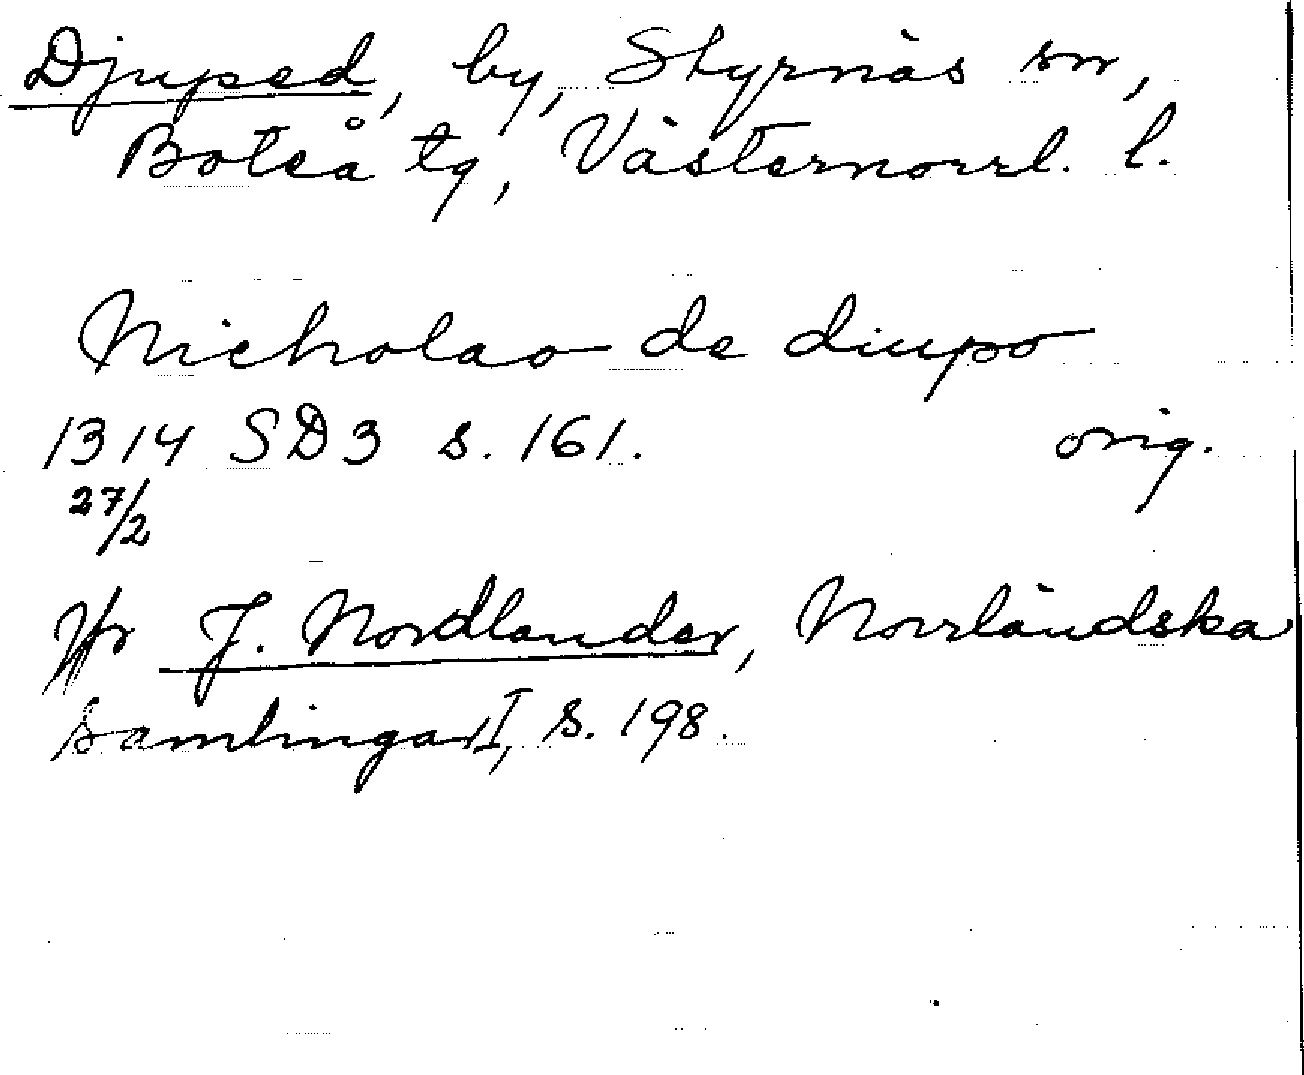 Djuped, by, Styrnäs sn,
Boteå tg, Västernorrl. l.
Nicholao de diupo
1314 SD3 s. 161. orig.
27/2
Jfr J. Nordlander, Norrländska
Samlingar I, s. 198.